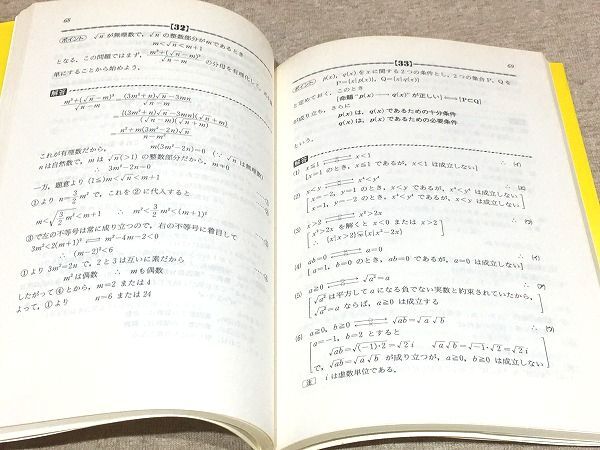 68
[32]
ポイント √n が無理数で，√n の整数部分が m であるとき
m<√n<m+1
となる．この問題ではまず，m²+(√n−m)²/√n−m の分母を有理化して
単にすることから始めよう．
解答
m²+(√n−m)²/√n−m = (2m²+n)−2m√n/√n−m
これが有理数だから， m(3m²−2n)=0 (∵ √n は無理数)
n は自然数で，m は √n(>1) の整数部分だから，m≠0
∴ 3m²−2n=0
一方，題意より (1≦)m<√n<m+1
①より n=3/2m² で，これを②に代入すると
m<√3/2 m<m+1 ∴ m²<3/2m²<(m+1)²
③で左の不等号は常に成り立つので，右の不等号に着目して
3m²<2(m+1)² ⟺ m²−4m−2<0
∴ (m−2)²<6
①より 3m²=2n で，2 と 3 は互いに素だから
m² は偶数 ∴ m も偶数
したがって④とから，m=2 または 4
よって，①より n=6 または 24
69
[33]
ポイント p(x)，q(x) を x に関する2つの条件とし，2つの条件 P，Q を
P={x|p(x)}，Q={x|q(x)}
と定めておく．このとき
[命題“p(x)→q(x)”が正しい]⟺[P⊂Q]
が成り立ち，さらに
p(x) は，q(x) であるための十分条件
q(x) は，p(x) であるための必要条件
解答
(1) x≦1 ⇄ x<1
[x=1 のとき，x≦1 であるが，x<1 は成立しない]
(2) x<y ⇄ x²<y²
[x=−2，y=1 のとき，x<y であるが，x²<y² は成立しない
x=1，y=−2 のとき，x²<y² であるが，x<y は成立しない]
(3) x>2 ⇄ x²>2x
[x²>2x を解くと x<0 または x>2
∴ {x|x>2}⊊{x|x²>2x}]
(4) ab=0 ⇄ a=0
[a=1，b=0 のとき，ab=0 であるが，a=0 は成立しない]
(5) a≧0 ⇄ √a²=a
[√a² は平方して a² になる負でない実数と約束されていたから，
√a²=a ならば，a≧0 は成立する]
(6) a≧0，b≧0 ⇄ √ab=√a√b
[a=−1，b=2 とすると
√ab=√(−1)·2=√2 i √a√b=√−1·√2=√2 i
で，√ab=√a√b が成り立つが，a≧0，b≧0 は成立しない]
注 i は虚数単位である．